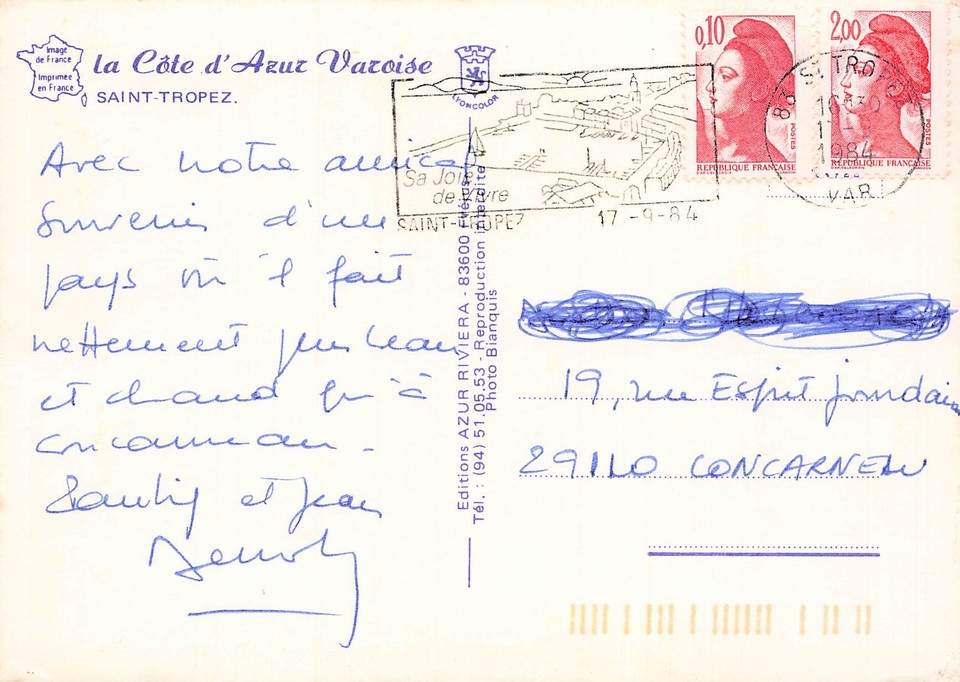 Image
de France
Imprimée
en France
la Côte d'Azur Varoise
SAINT-TROPEZ.
LYONCOLOR
Avec notre amical
souvenir d'un
pays où il fait
nettement plus beau
et chaud qu'à
concarneau.
et Jean
Sa Joie
de Vivre
SAINT-TROPEZ 17-9-84
Editions AZUR RIVIERA - 83600 Fréjus
Tél. : (94) 51.05.53 - Reproduction interdite
Photo Bianquis
0,10
REPUBLIQUE FRANÇAISE
POSTES
2,00
REPUBLIQUE FRANÇAISE
POSTES
83 ST TROPEZ
1984
VAR
19, rue Esprit jourdain
29110 CONCARNEAU